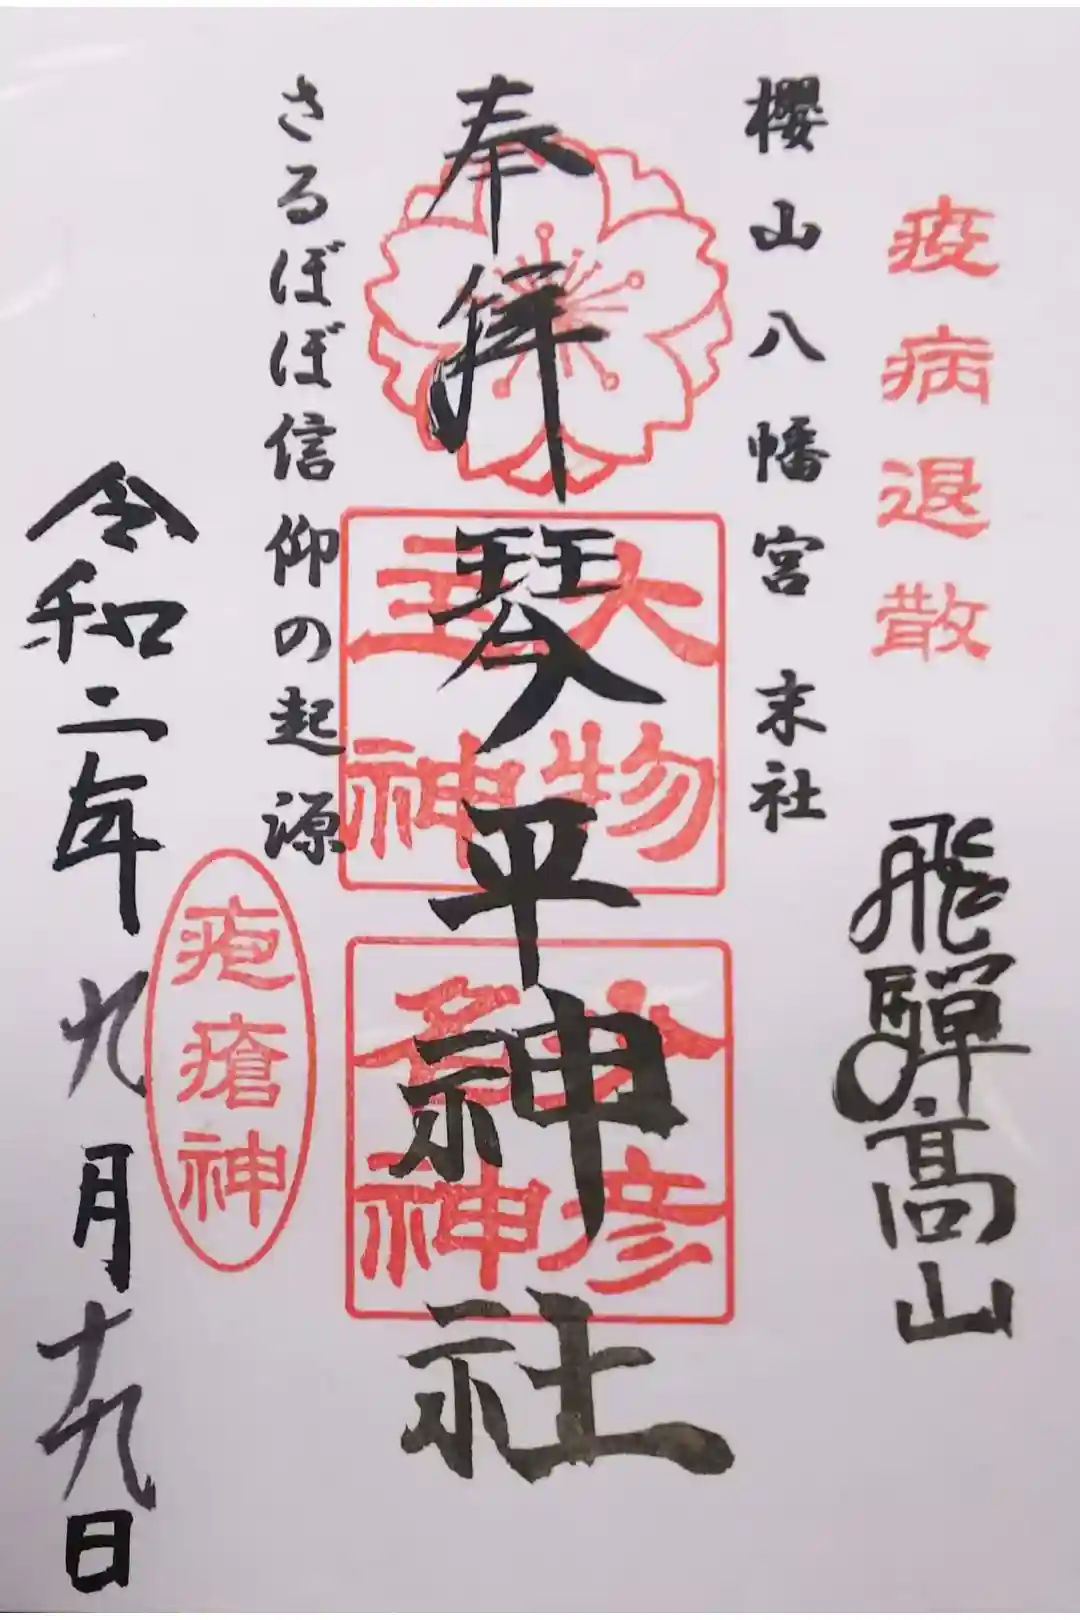 疫病退散
飛騨高山
櫻山八幡宮末社
奉拝
琴平神社
大物主神
少彦名神
さるぼぼ信仰の起源
疱瘡神
令和二年九月十九日